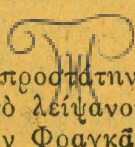 προστάτην
ὸ λείψανο
ν Φραγκᾶ